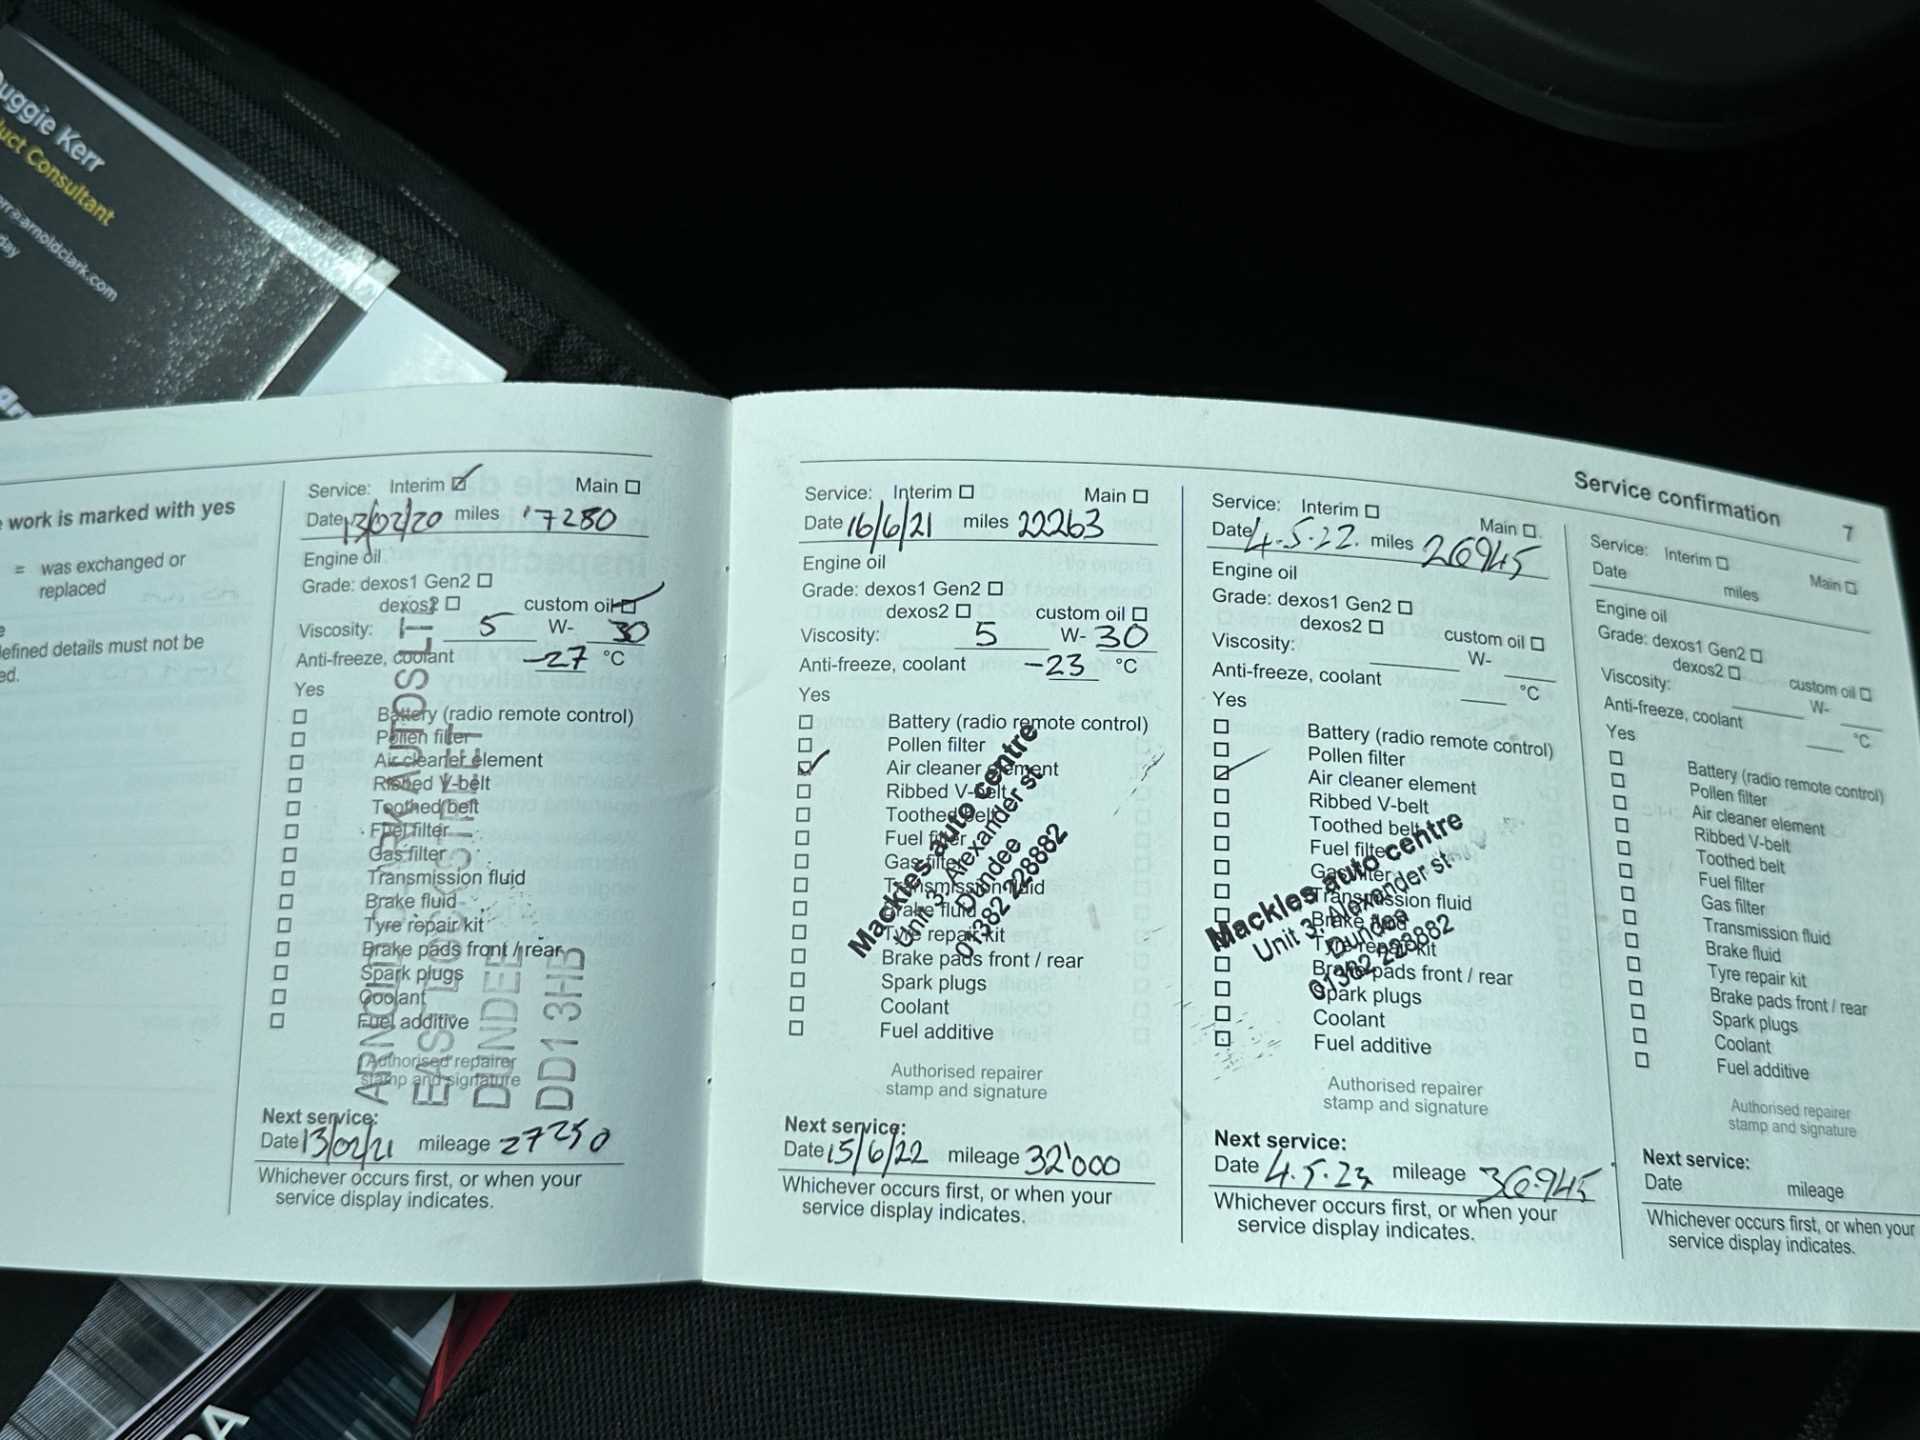 uggie Kerr
uct Consultant
rr@arnoldclark.com
day
Ar
work is marked with yes
= was exchanged or
replaced
efined details must not be
ed.
Service: Interim Main
Date 13/02/20 miles 17280
Engine oil
Grade: dexos1 Gen2
dexos2 custom oil
Viscosity: 5 W- 30
Anti-freeze, coolant -27 °C
Yes
Battery (radio remote control)
Pollen filter
Air cleaner element
Ribbed V-belt
Toothed belt
Fuel filter
Gas filter
Transmission fluid
Brake fluid
Tyre repair kit
Brake pads front / rear
Spark plugs
Coolant
Fuel additive
ARNOLD CLARK AUTOS LT
EAST DOCK STREET
DUNDEE
DD1 3HB
Authorised repairer
stamp and signature
Next service:
Date 13/02/21 mileage 27250
Whichever occurs first, or when your
service display indicates.
Service confirmation 7
Service: Interim Main
Date 16/6/21 miles 22263
Engine oil
Grade: dexos1 Gen2
dexos2 custom oil
Viscosity: 5 W- 30
Anti-freeze, coolant -23 °C
Yes
Battery (radio remote control)
Pollen filter
Air cleaner element
Ribbed V-belt
Toothed belt
Fuel filter
Gas filter
Transmission fluid
Brake fluid
Tyre repair kit
Brake pads front / rear
Spark plugs
Coolant
Fuel additive
Mackles auto centre
Unit 3, Alexander st
Dundee
01382 228882
Authorised repairer
stamp and signature
Next service:
Date 15/6/22 mileage 32'000
Whichever occurs first, or when your
service display indicates.
Service: Interim Main
Date 4.5.22. miles 26945
Engine oil
Grade: dexos1 Gen2
dexos2 custom oil
Viscosity: W-
Anti-freeze, coolant °C
Yes
Battery (radio remote control)
Pollen filter
Air cleaner element
Ribbed V-belt
Toothed belt
Fuel filter
Gas filter
Transmission fluid
Brake fluid
Tyre repair kit
Brake pads front / rear
Spark plugs
Coolant
Fuel additive
Mackles auto centre
Unit 3, Alexander st
Dundee
01382 228882
Authorised repairer
stamp and signature
Next service:
Date 4.5.23 mileage 36.945
Whichever occurs first, or when your
service display indicates.
Service: Interim Main
Date miles
Engine oil
Grade: dexos1 Gen2
dexos2 custom oil
Viscosity: W-
Anti-freeze, coolant °C
Yes
Battery (radio remote control)
Pollen filter
Air cleaner element
Ribbed V-belt
Toothed belt
Fuel filter
Gas filter
Transmission fluid
Brake fluid
Tyre repair kit
Brake pads front / rear
Spark plugs
Coolant
Fuel additive
Authorised repairer
stamp and signature
Next service:
Date mileage
Whichever occurs first, or when your
service display indicates.